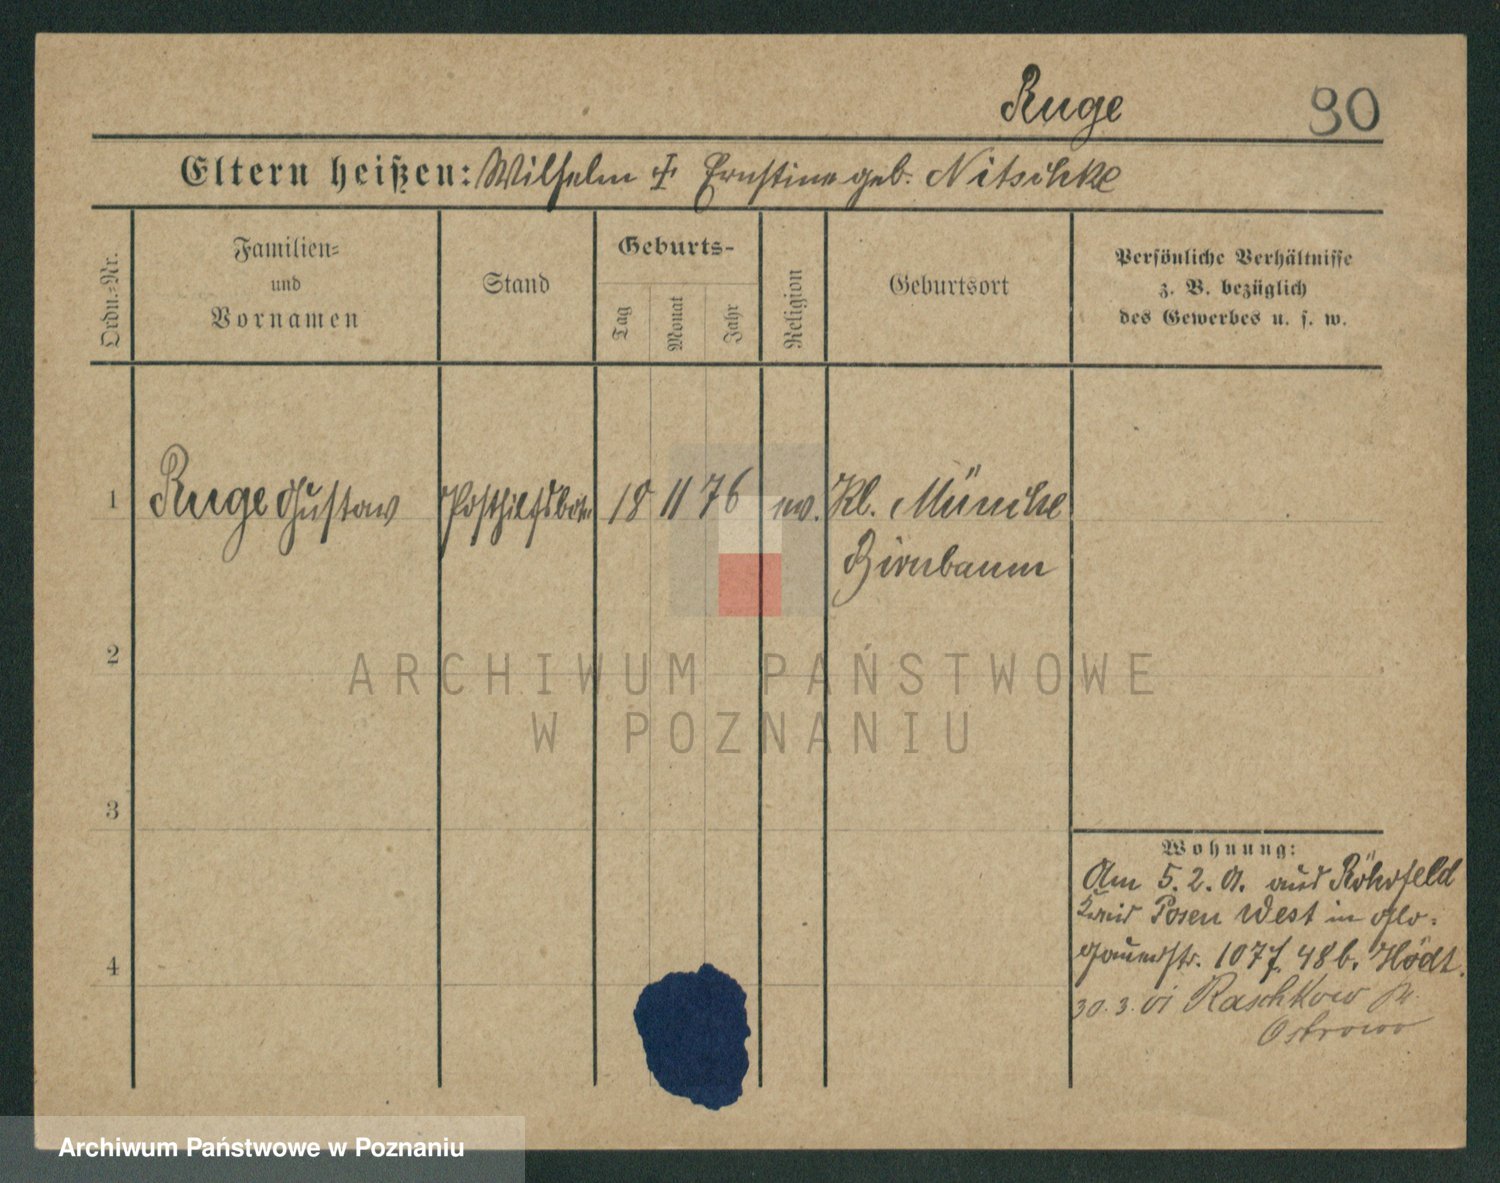 Ruge 90
Eltern heißen: Wilhelm Ernstine geb. Nitschke
Ordn.-Nr.
Familien-
und
Vornamen
Stand
Geburts-
Tag
Monat
Jahr
Religion
Geburtsort
Persönliche Verhältnisse
z. B. bezüglich
des Gewerbes u. s. w.
1 Ruge Gustav Posthilfsbote 18 11 76 ev. Kl. Münche
Birnbaum
2
3
4
Wohnung:
Am 5.2.01. aus Röhrfeld
Kreis Posen West in Glo-
gauerstr. 107 48b. Hödt.
30.3.01 Raschkow
Ostrowo
ARCHIWUM PAŃSTWOWE
W POZNANIU
Archiwum Państwowe w Poznaniu